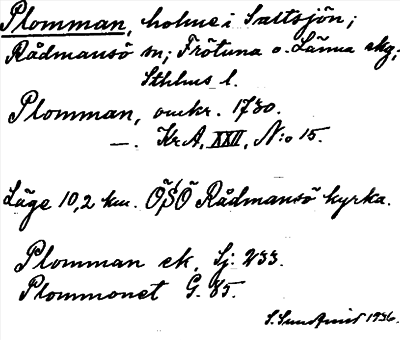 Plomman, holme i Saltsjön;
Rådmansö sn; Frötuna o. Länna skg;
Sthlms l.
Plomman, omkr. 1730.
—. Kr A, XXII, N:o 15.
Läge 10,2 km. ÖSÖ Rådmansö kyrka.
Plomman ek. Sj: 233.
Plommonet G. 85.
S. Sundqvist 1936.